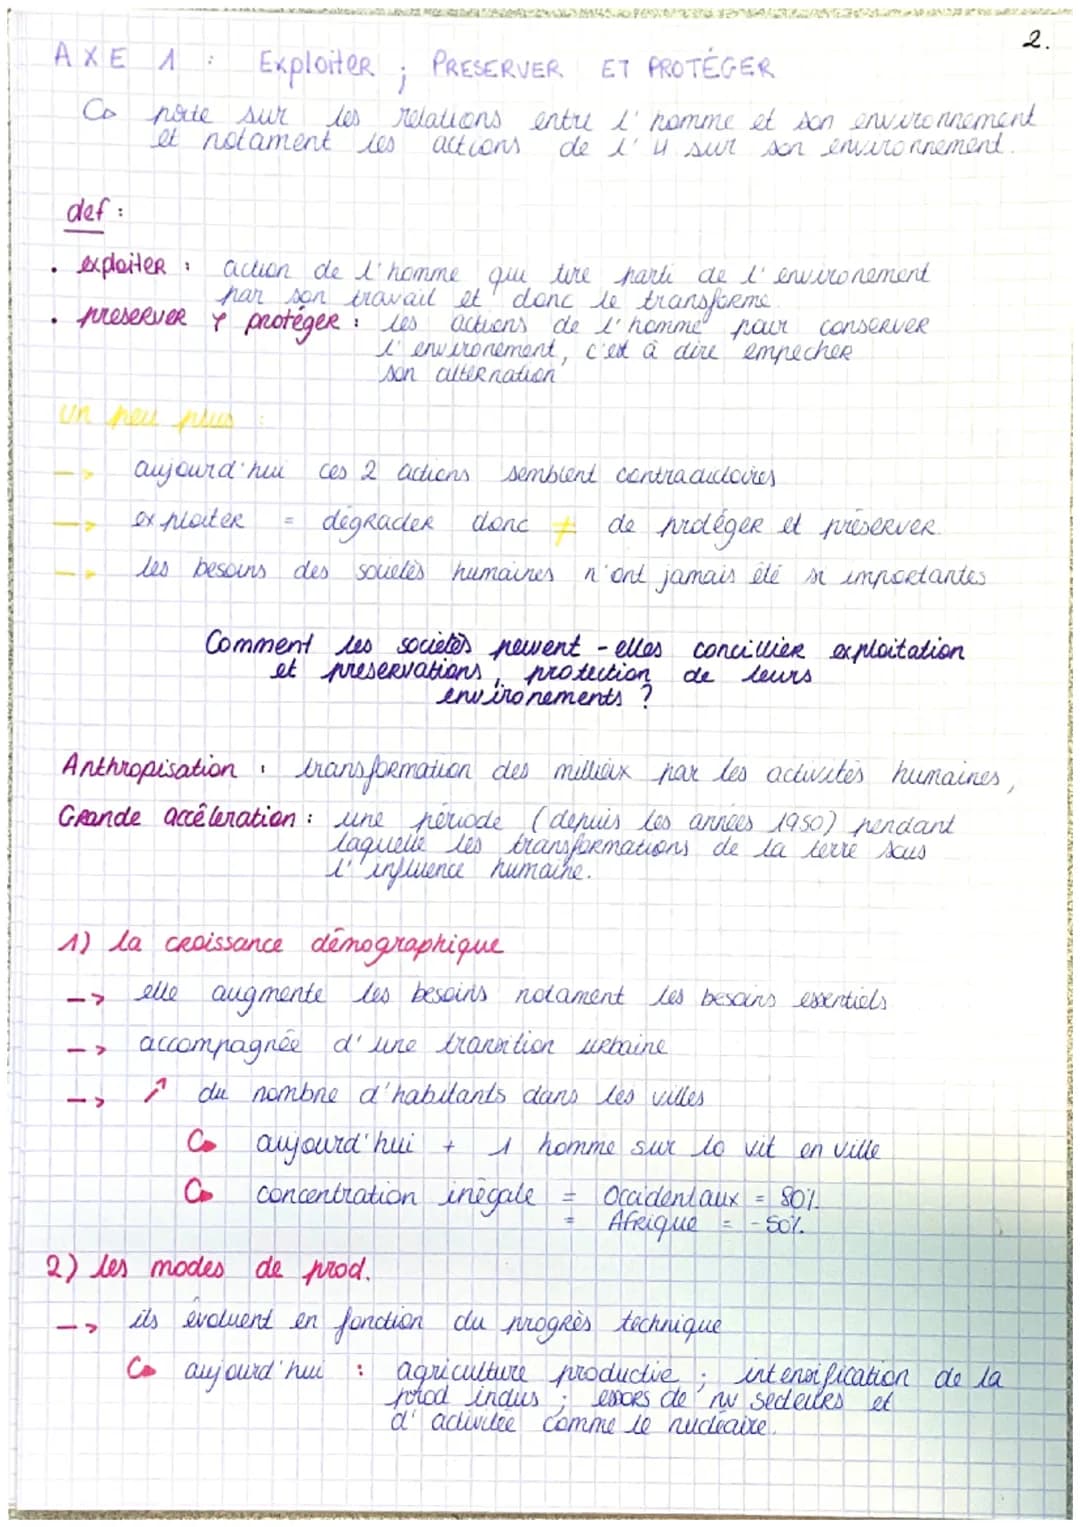 2.
AXE 1 : Exploiter ; PRESERVER ET PROTÉGER
porte sur les relations entre l'homme et son environnement
et notament les actions de l'H sur son environnement.
def :
• exploiter : action de l'homme qui tire parti de l'environement
par son travail et donc le transforme
• preserver & protéger : les actions de l'homme pour conserver
l'environement, c'est à dire empecher
son alternation
un peu plus :
--> aujourd'hui ces 2 actions semblent contradictoires
--> exploiter = dégrader donc ≠ de protéger et préserver.
--> les besoins des sociétés humaines n'ont jamais été si importantes
Comment les sociétés peuvent-elles concillier exploitation
et preservations, protection de leurs
environements ?
Anthropisation : transformation des millieux par les activités humaines,
Grande accéleration : une période (depuis les années 1950) pendant
laquelle les transformations de la terre sous
l'influence humaine.
1) la croissance démographique
--> elle augmente les besoins notament les besoins essentiels
--> accompagnée d'une transition urbaine
--> ↗ du nombre d'habitants dans les villes
aujourd'hui + 1 homme sur 10 vit en ville
concentration inégale = Occidentaux = 80%
= Afrique = -50%
2) les modes de prod.
--> ils évoluent en fonction du progrès technique
aujourd'hui : agriculture productive ; intensification de la
prod indus ; essors de nv secteurs et
d'activitée comme le nucléaire.